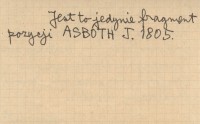 Jest to jedynie fragment
pozycji ASBÓTH J. 1805.